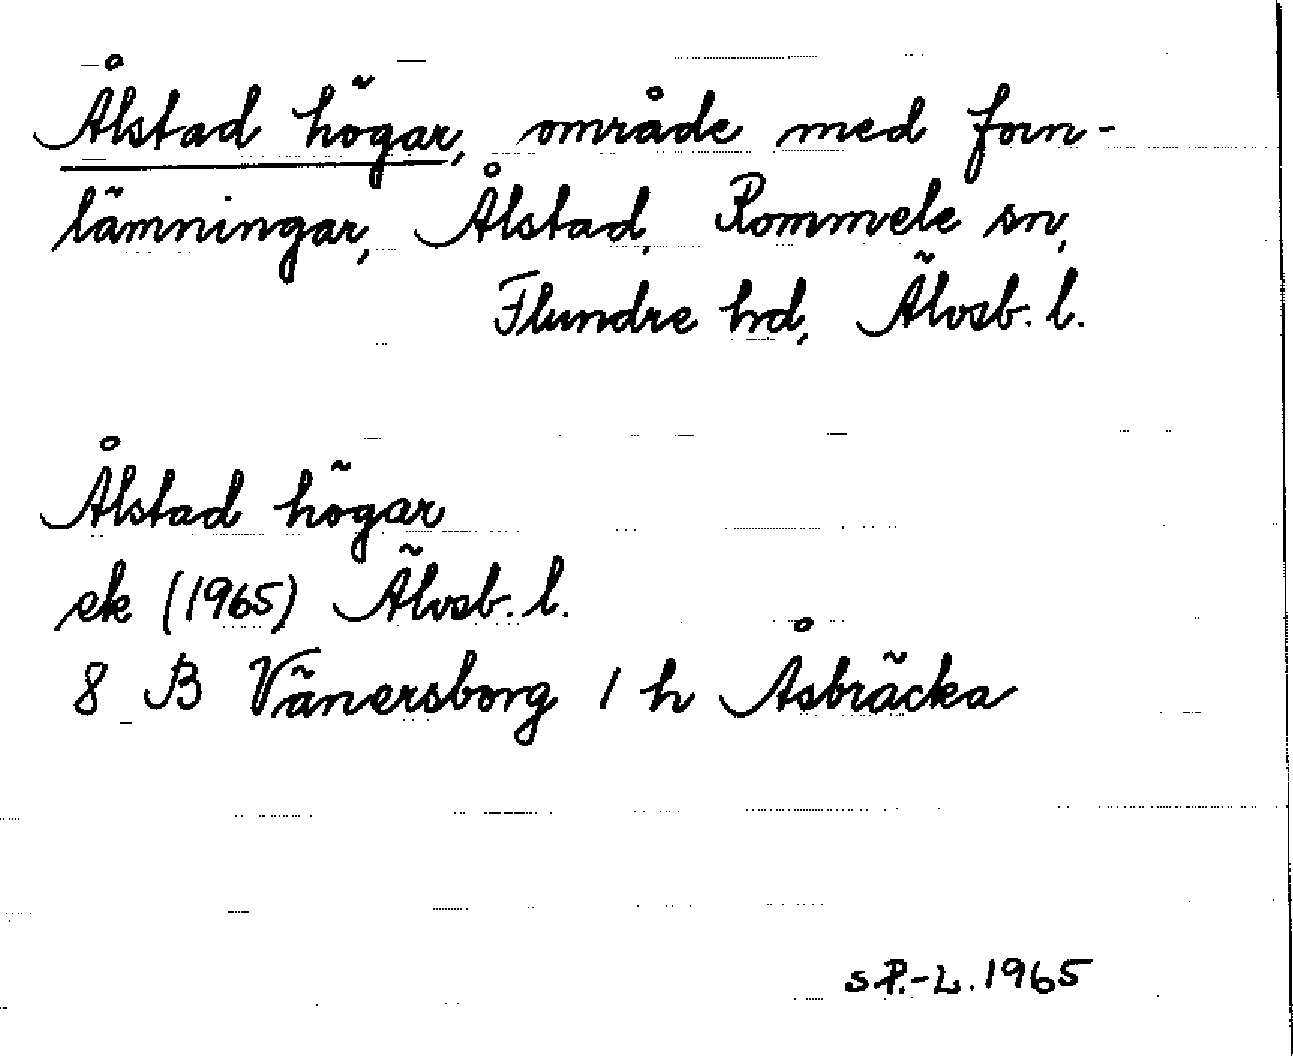 Ålstad högar, område med forn-
lämningar, Ålstad, Rommele sn,
Flundre hd, Älvsb. l.
Ålstad högar
ek (1965) Älvsb. l.
8 B Vänersborg 1 h Åsbräcka
S P.-L. 1965